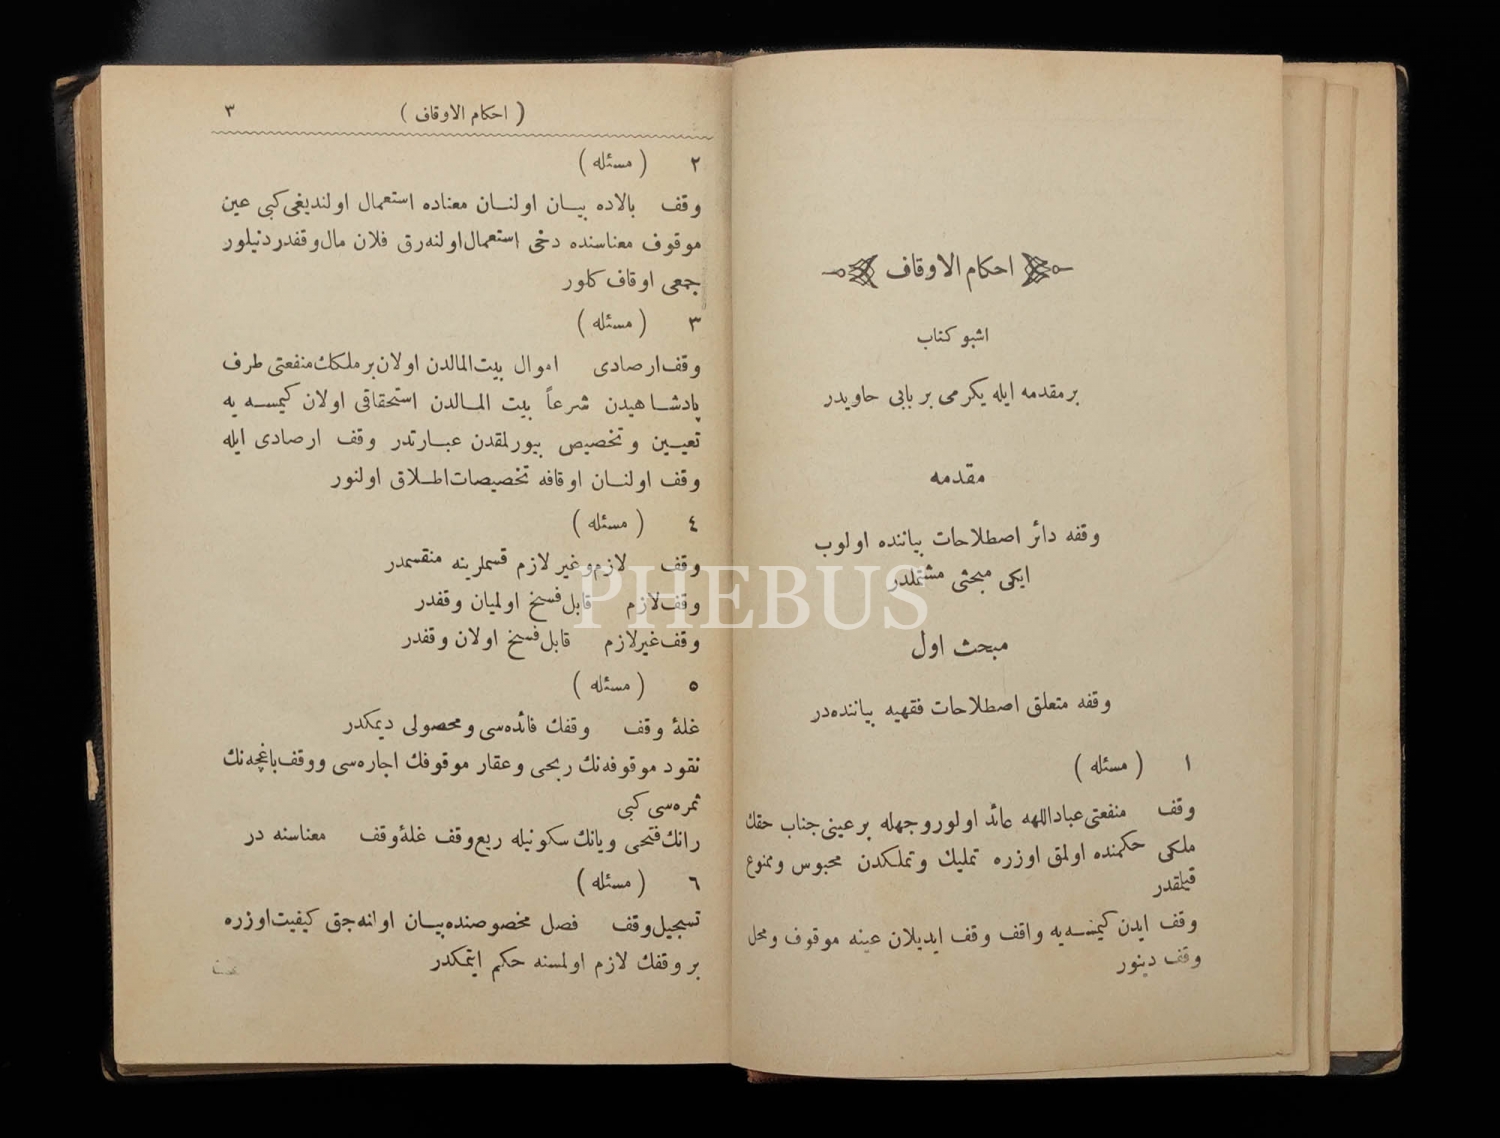 احكام الاوقاف
اشبو كتاب
بر مقدمه ايله يكرمى بر بابى حاويدر
مقدمه
وقفه دائر اصطلاحات بياننده اولوب
ايكى مبحثى مشتملدر
مبحث اول
وقفه متعلق اصطلاحات فقهيه بياننده‌در
١ ( مسئله )
وقف منفعتى عباداللهه عائد اولور وجهله بر عينى جناب حقك
ملكى حكمنده اولمق اوزره تمليك و تملكدن محبوس و ممنوع
قيلقدر
وقف ايدن كيمسه‌يه واقف وقف ايديلان عينه موقوف و محل
وقف دينور
( احكام الاوقاف ) ٣
٢ ( مسئله )
وقف بالاده بيان اولنان معناده استعمال اولنديغى كبى عين
موقوف معناسنده دخى استعمال اولنه‌رق فلان مال وقفدر دنيلور
جمعى اوقاف كلور
٣ ( مسئله )
وقف ارصادى اموال بيت‌المالدن اولان بر ملكك منفعتى طرف
پادشاهيدن شرعاً بيت المالدن استحقاقى اولان كيمسه يه
تعيين و تخصيص بيورلمقدن عبارتدر وقف ارصادى ايله
وقف اولنان اوقافه تخصيصات اطلاق اولنور
٤ ( مسئله )
وقف لازم و غير لازم قسملرينه منقسمدر
وقف لازم قابل فسخ اولميان وقفدر
وقف غير لازم قابل فسخ اولان وقفدر
٥ ( مسئله )
غلۀ وقف وقفك فائده‌سى و محصولى ديمكدر
نقود موقوفه‌نك ربحى و عقار موقوفك اجاره‌سى و وقف باغچه‌نك
ثمره‌سى كبى
رانك فتحى و يانك سكونيله ريع وقف غلۀ وقف معناسنه در
٦ ( مسئله )
تسجيل وقف فصل مخصوصنده بيان اولنه جق كيفيت اوزره
بر وقفك لازم اولمسنه حكم ايتمكدر
PHEBUS